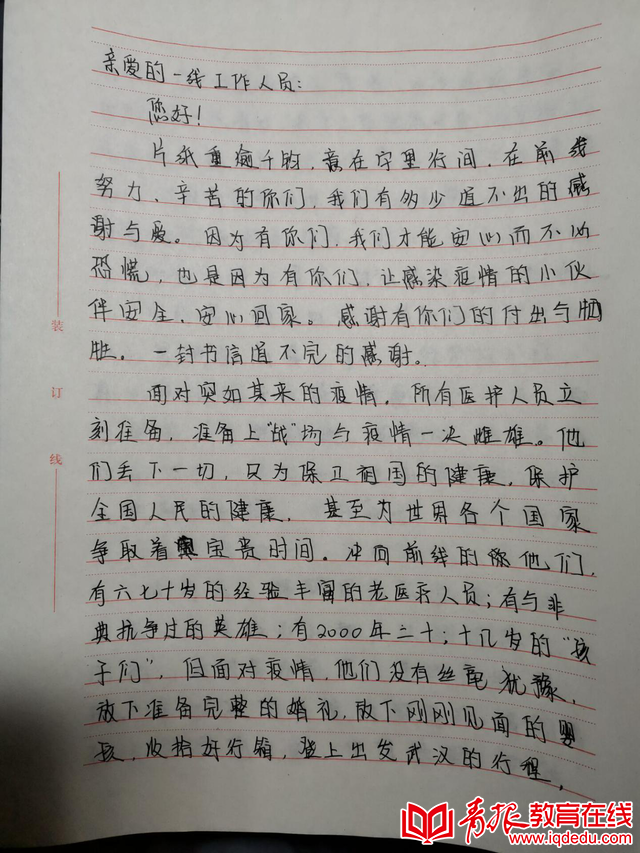 亲爱的一线工作人员:
您好!
片纸重逾千钧,意在字里行间,在前线
努力、辛苦的你们,我们有多少道不出的感
谢与爱。因为有你们,我们才能安心而不必
恐慌,也是因为有你们,让感染疫情的小伙
伴安全、安心回家。感谢有你们的付出与牺
牲。一封书信道不完的感谢。
面对突如其来的疫情,所有医护人员立
刻准备,准备上“战”场与疫情一决雌雄。他
们丢下一切,只为保卫祖国的健康,保护
全国人民的健康,甚至为世界各个国家
争取着宝贵时间。冲向前线的他们,
有六七十岁的经验丰富的老医疗人员;有与非
典抗争过的英雄;有2000年二十;十几岁的“孩
子们”,但面对疫情,他们没有丝毫犹豫,
放下准备完整的婚礼,放下刚刚见面的婴
孩,收拾好行箱,登上出发武汉的行程,
装
订
线
青报教育在线
www.iqdedu.com